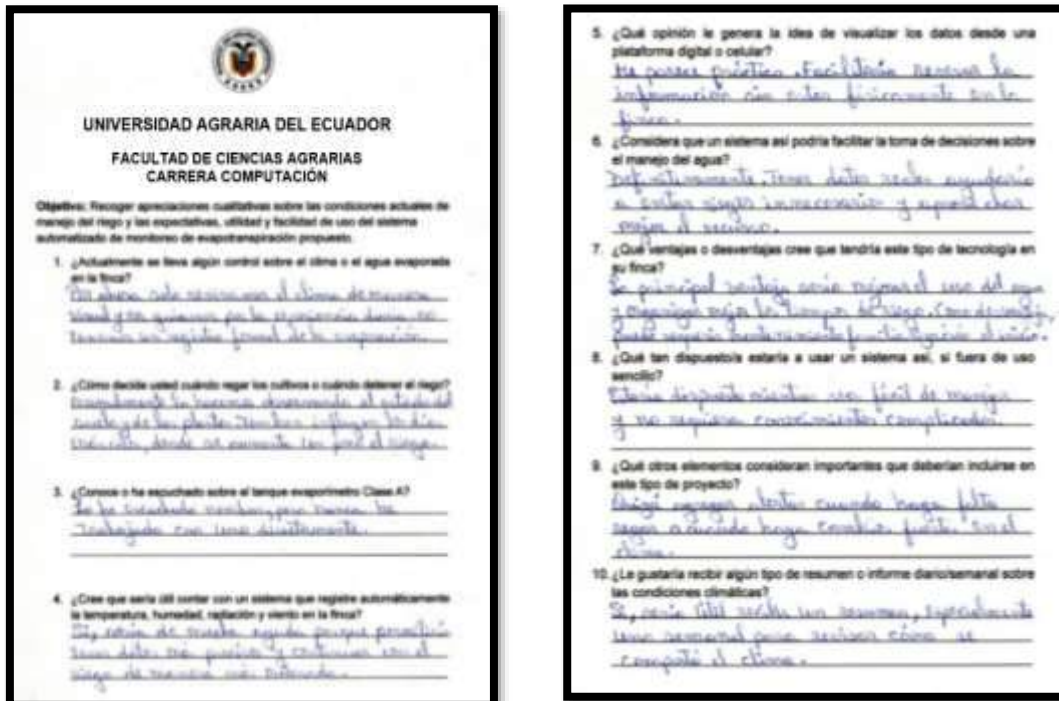 UNIVERSIDAD AGRARIA DEL ECUADOR
FACULTAD DE CIENCIAS AGRARIAS
CARRERA COMPUTACIÓN
Objetivo: Recoger apreciaciones cualitativas sobre las condiciones actuales de
manejo del riego y las expectativas, utilidad y facilidad de uso del sistema
automatizado de monitoreo de evapotranspiración propuesto.
1. ¿Actualmente se lleva algún control sobre el clima o el agua evaporada
en la finca?
Por ahora solo revisamos el clima de manera
visual y nos guiamos por la experiencia diaria, no
tenemos un registro formal de la evaporación.
2. ¿Cómo decide usted cuándo regar los cultivos o cuándo detener el riego?
Normalmente lo hacemos observando el estado del
suelo y de las plantas. También influyen los días
donde se aumenta un poco el riego.
3. ¿Conoce o ha escuchado sobre el tanque evaporímetro Clase A?
Lo he escuchado nombrar, pero nunca he
trabajado con uno directamente.
4. ¿Cree que sería útil contar con un sistema que registre automáticamente
la temperatura, humedad, radiación y viento en la finca?
Sí, sería de mucha ayuda porque permitiría
tener datos más precisos y
riego de manera más
5. ¿Qué opinión le genera la idea de visualizar los datos desde una
plataforma digital o celular?
Me parece práctico. Facilitaría revisar la
información sin estar físicamente en la
finca.
6. ¿Considera que un sistema así podría facilitar la toma de decisiones sobre
el manejo del agua?
Definitivamente. Tener datos reales ayudaría
a evitar riegos innecesarios y aprovechar
mejor el recurso.
7. ¿Qué ventajas o desventajas cree que tendría este tipo de tecnología en
su finca?
La principal ventaja sería mejorar el uso del agua
y organizar mejor los tiempos de riego. Como desventaja,
puede requerir mantenimiento al inicio.
8. ¿Qué tan dispuesto/a estaría a usar un sistema así, si fuera de uso
sencillo?
Estaría dispuesto mientras sea fácil de manejar
y no requiera conocimientos complicados.
9. ¿Qué otros elementos consideran importantes que deberían incluirse en
este tipo de proyecto?
Quizá agregar alertas cuando haga falta
regar o cuando haya cambios fuertes en el
clima.
10. ¿Le gustaría recibir algún tipo de resumen o informe diario/semanal sobre
las condiciones climáticas?
Sí, sería útil recibir un resumen, especialmente
uno semanal para revisar cómo se
comportó el clima.